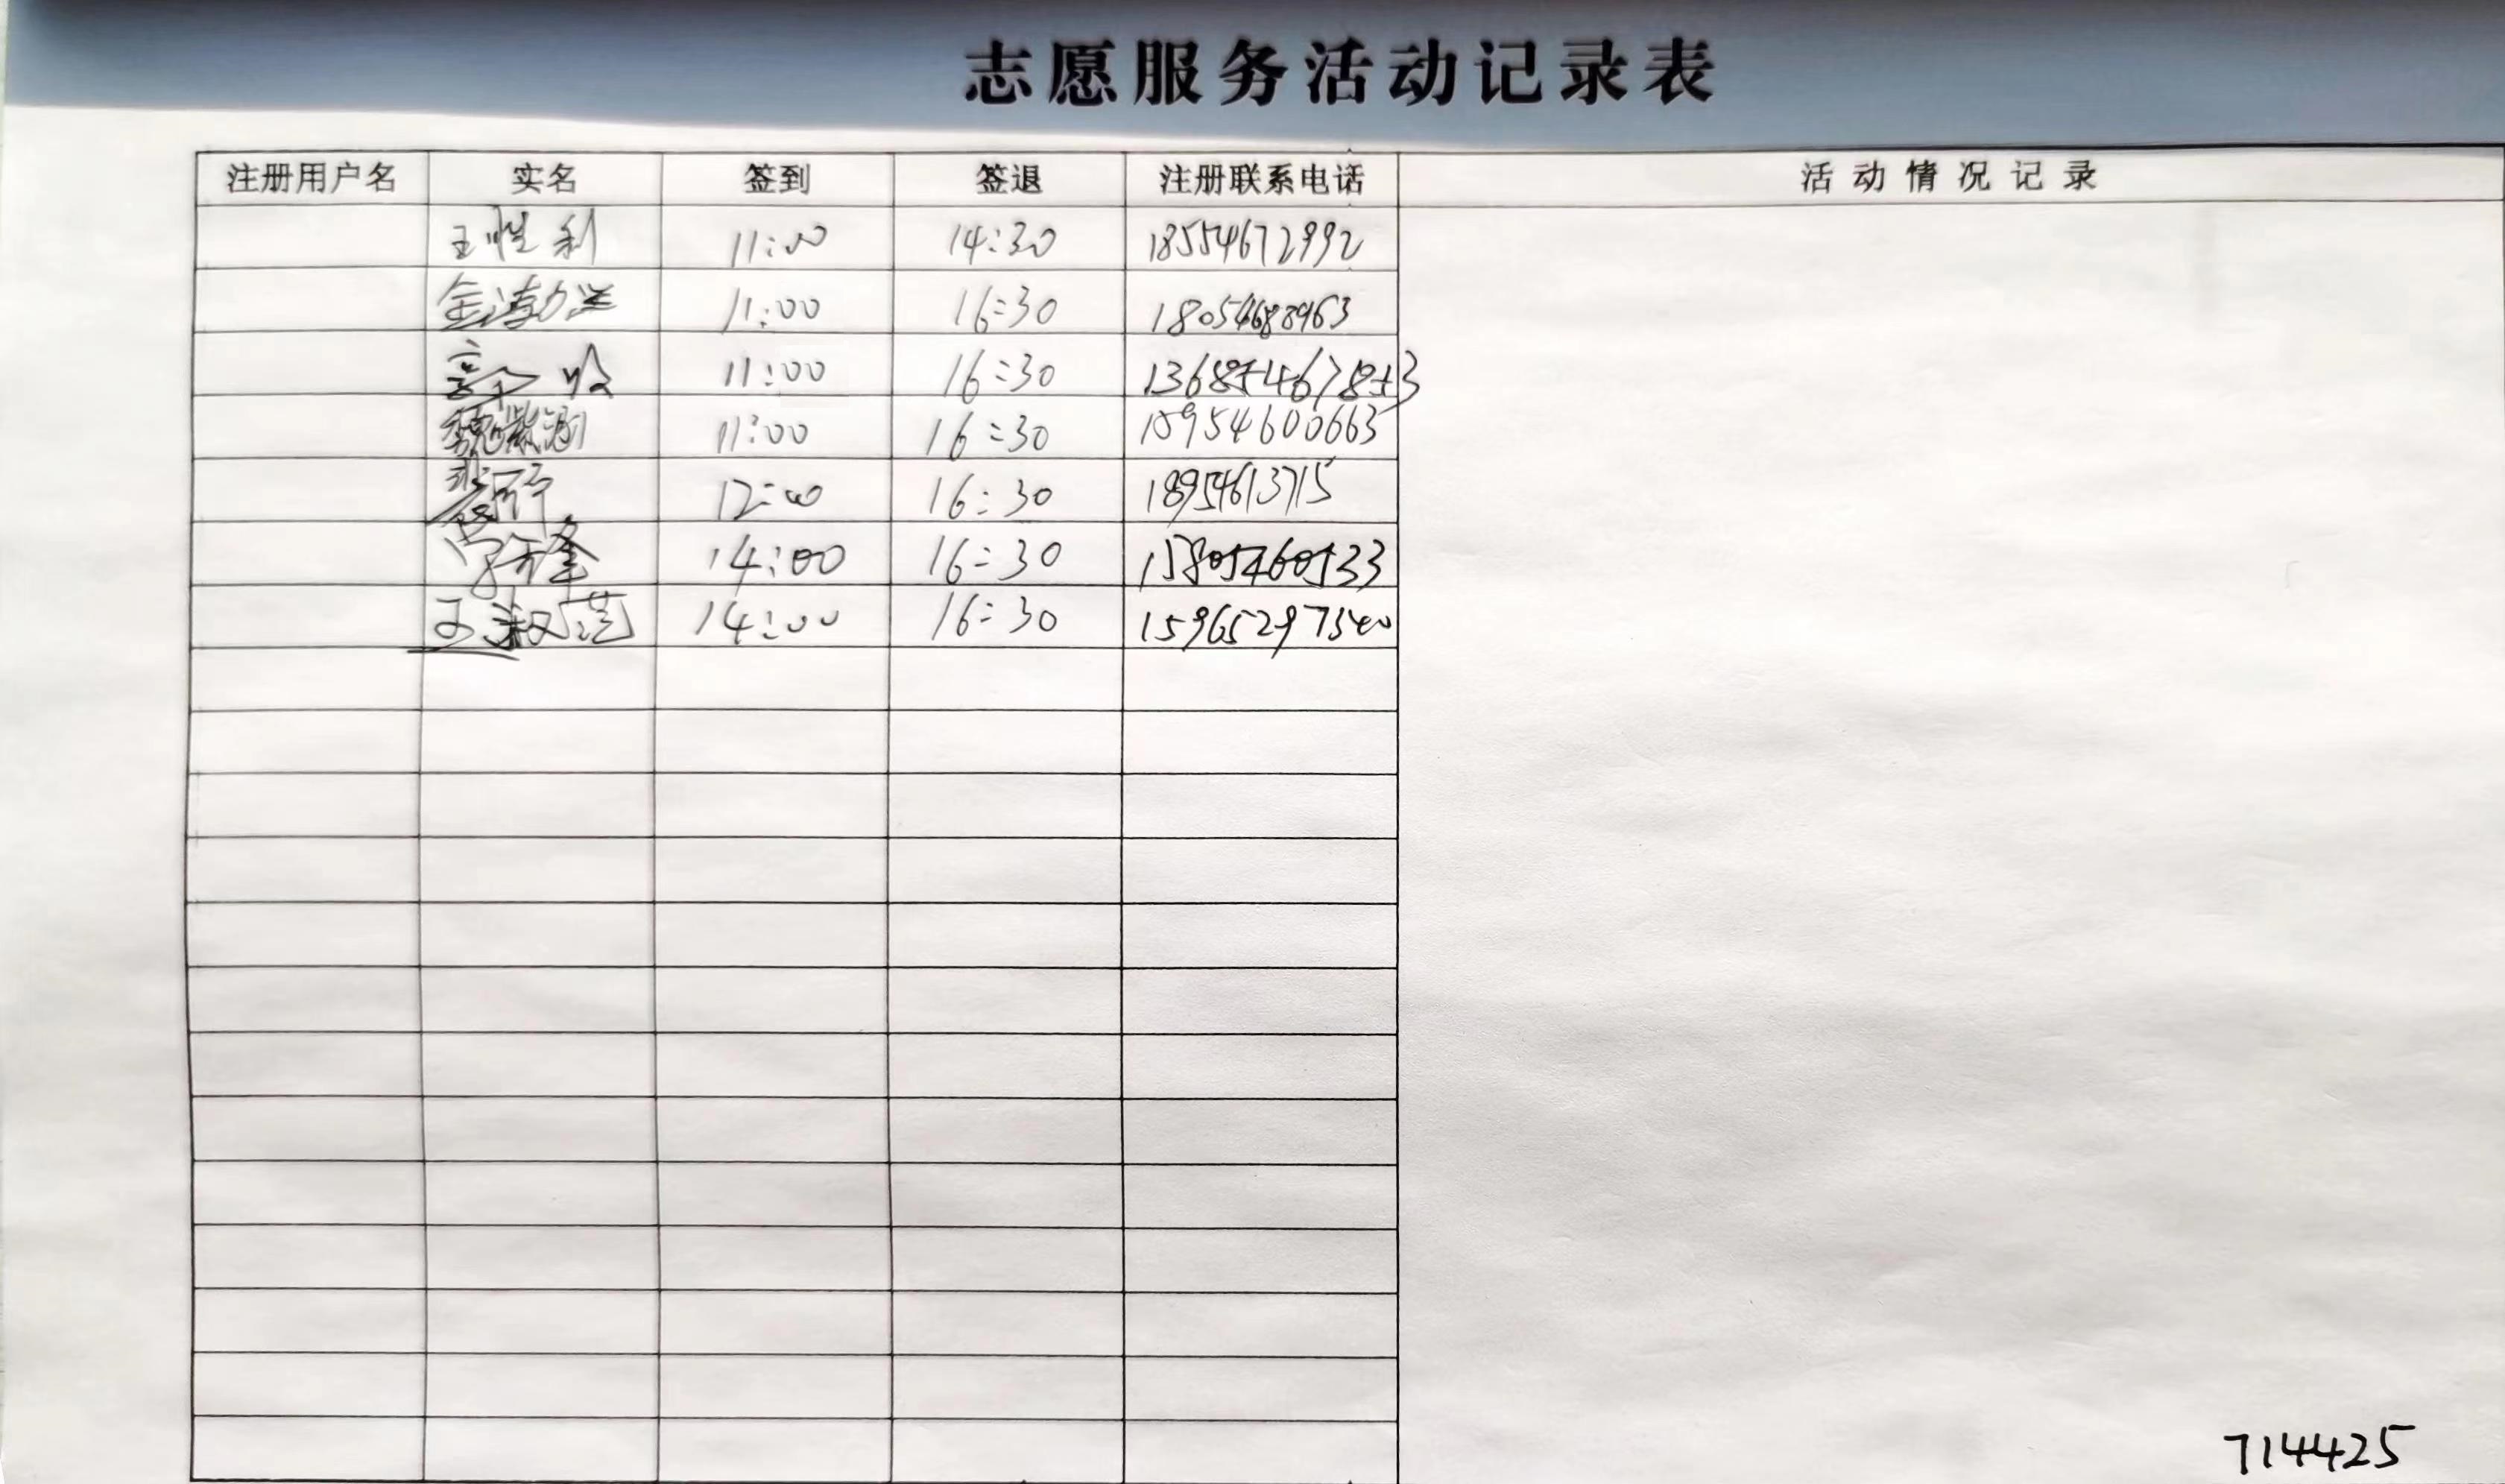 志愿服务活动记录表
注册用户名 实名 签到 签退 注册联系电话 活动情况记录
王胜利 11:00 14:30 18554672992
11:00 16:30 18054688963
11:00 16:30
魏紫涵 11:00 16:30 15954600663
12:00 16:30 18954613715
14:00 16:30 15805460533
王淑范 14:00 16:30 15965297340
714425